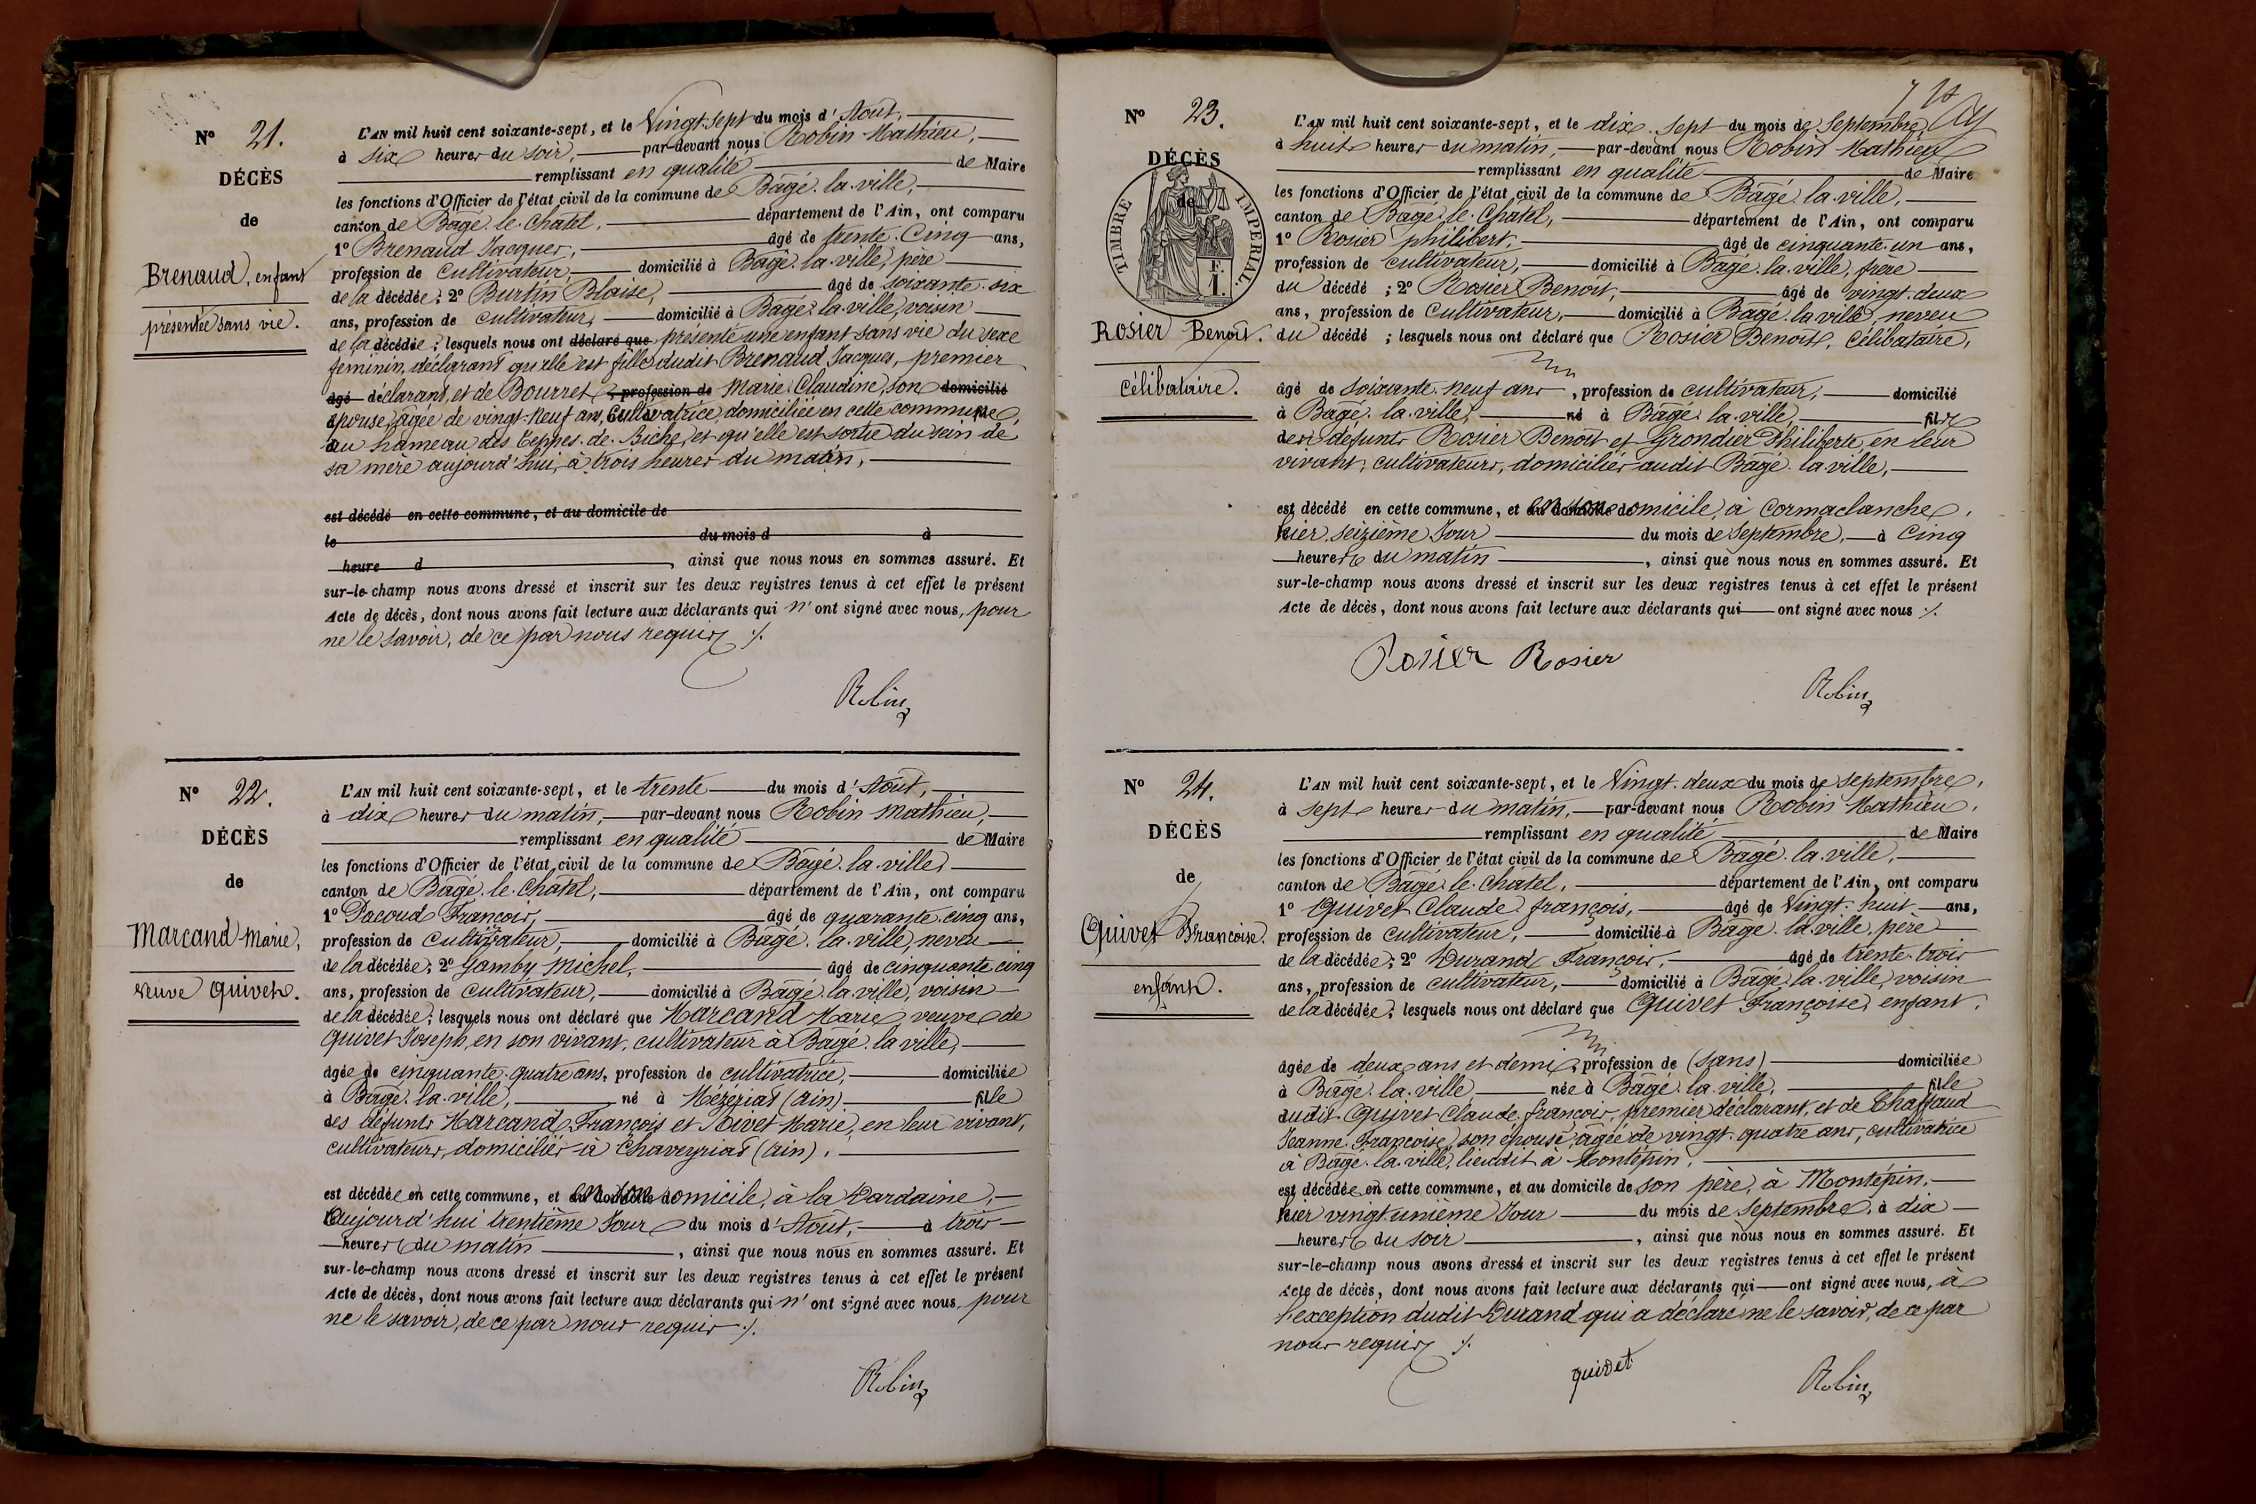 Nº 21.
DÉCÈS
de
Brenaud, enfant
présentée sans vie.
L'AN mil huit cent soixante-sept, et le Vingt-sept du mois d'Août,
à six heures du soir, par-devant nous Robin Mathieu,
remplissant en qualité de Maire
les fonctions d'Officier de l'état civil de la commune de Bâgé-la-ville,
canton de Bâgé-le-Chatel, département de l'Ain, ont comparu
1º Brenaud Jacques, âgé de trente-Cinq ans,
profession de Cultivateur, domicilié à Bâgé-la-ville, père
de la décédée; 2º Burtin Blaise, âgé de soixante-six
ans, profession de cultivateur, domicilié à Bâgé-la-ville, voisin
de la décédée; lesquels nous ont déclaré que présenté une enfant sans vie du sexe
feminin, déclarant qu'elle est fille dudit Brenaud Jacques, premier
âgé déclarant, et de Bourret, profession de Marie Claudine, son domicilié
épouse, âgée de vingt-neuf ans, Cultivatrice, domiciliée en cette commune,
au hameau des Teppes-de-Biche, et qu'elle est sortie du sein de
sa mère aujourd'hui, à trois heures du matin,
est décédé en cette commune, et au domicile de
le du mois d à
heure d , ainsi que nous nous en sommes assuré. Et
sur-le-champ nous avons dressé et inscrit sur les deux registres tenus à cet effet le présent
Acte de décès, dont nous avons fait lecture aux déclarants qui n'ont signé avec nous, pour
ne le savoir, de ce par nous requis ./.
Robin
Nº 22.
DÉCÈS
de
Marcand Marie,
veuve Quivet.
L'AN mil huit cent soixante-sept, et le trente du mois d'Août,
à dix heures du matin, par-devant nous Robin Mathieu,
remplissant en qualité de Maire
les fonctions d'Officier de l'état civil de la commune de Bâgé-la-ville,
canton de Bâgé-le-Châtel, département de l'Ain, ont comparu
1º Pacoud François, âgé de quarante-cinq ans,
profession de Cultivateur, domicilié à Bâgé-la-ville, neveu
de la décédée; 2º Gamby Michel, âgé de cinquante cinq
ans, profession de Cultivateur, domicilié à Bâgé-la-ville, voisin
de la décédée; lesquels nous ont déclaré que Marcand Marie, veuve de
Quivet Joseph, en son vivant, cultivateur à Bâgé-la-ville,
âgée de cinquante-quatre ans, profession de cultivatrice, domiciliée
à Bâgé-la-ville, né à Mézériat (Ain) fille
des défunts Marcand François et Poivet Marie, en leur vivant,
cultivateurs, domiciliés à Chaveyriat (ain),
est décédée en cette commune, et en son domicile, à la Dardaine,
aujourd'hui trentième Jour du mois d'Août, à trois
heures du matin , ainsi que nous nous en sommes assuré. Et
sur-le-champ nous avons dressé et inscrit sur les deux registres tenus à cet effet le présent
Acte de décès, dont nous avons fait lecture aux déclarants qui n'ont signé avec nous, pour
ne le savoir, de ce par nous requis ./.
Robin
Nº 23.
DÉCÈS
de
TIMBRE IMPERIAL.
F. I.
Rosier Benoit.
Célibataire.
L'AN mil huit cent soixante-sept, et le dix-sept du mois de Septembre,
à huit heures du matin, par-devant nous Robin Mathieu,
remplissant en qualité de Maire
les fonctions d'Officier de l'état civil de la commune de Bâgé-la-ville,
canton de Bâgé-le-Châtel, département de l'Ain, ont comparu
1º Rosier philibert, âgé de cinquante-un ans,
profession de cultivateur, domicilié à Bâgé-la-ville, frère
du décédé ; 2º Rosier Benoit, âgé de vingt-deux
ans, profession de Cultivateur, domicilié à Bâgé-la-ville, neveu
du décédé ; lesquels nous ont déclaré que Rosier Benoit, Célibataire,
âgé de soixante-neuf ans , profession de cultivateur, domicilié
à Bâgé-la-ville, né à Bâgé-la-ville, fils
des défunts Rosier Benoît et Grondier Philiberte, en leur
vivant, cultivateurs, domiciliés audit Bâgé-la-ville,
est décédé en cette commune, et en son domicile, à Cormaclanche,
hier, seizième Jour du mois de Septembre, à Cinq
heures du matin , ainsi que nous nous en sommes assuré. Et
sur-le-champ nous avons dressé et inscrit sur les deux registres tenus à cet effet le présent
Acte de décès, dont nous avons fait lecture aux déclarants qui ont signé avec nous ./.
Rosier Rosier
Robin
Nº 24.
DÉCÈS
de
Quivet Françoise.
enfant.
L'AN mil huit cent soixante-sept, et le Vingt-deux du mois de septembre,
à sept heures du matin, par-devant nous Robin Mathieu,
remplissant en qualité de Maire
les fonctions d'Officier de l'état civil de la commune de Bâgé-la-ville,
canton de Bâgé-le-Châtel, département de l'Ain, ont comparu
1º Quivet Claude-françois, âgé de Vingt-huit ans,
profession de Cultivateur, domicilié à Bâgé-la-ville, père
de la décédée; 2º Durand François, âgé de trente-trois
ans, profession de cultivateur, domicilié à Bâgé-la-ville, voisin
de la décédée; lesquels nous ont déclaré que Quivet Françoise, enfant,
âgée de deux ans et demi, profession de (sans) domiciliée
à Bâgé-la-ville née à Bâgé-la-ville, fille
dudit Quivet Claude-françois, premier déclarant, et de Chaffaud
Jeanne-Françoise, son épouse, âgée de vingt-quatre ans, cultivatrice
à Bâgé-la-ville, lieudit à Montépin,
est décédée en cette commune, et au domicile de son père, à Montépin,
hier vingt-unième Jour du mois de Septembre, à dix
heures du soir , ainsi que nous nous en sommes assuré. Et
sur-le-champ nous avons dressé et inscrit sur les deux registres tenus à cet effet le présent
Acte de décès, dont nous avons fait lecture aux déclarants qui ont signé avec nous, à
l'exception dudit Durand qui a déclaré ne le savoir, de ce par
nous requis ./.
quivet
Robin